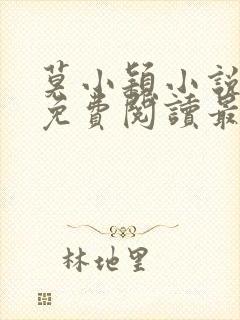 莫小穎小說
免費閱讀最
林地里